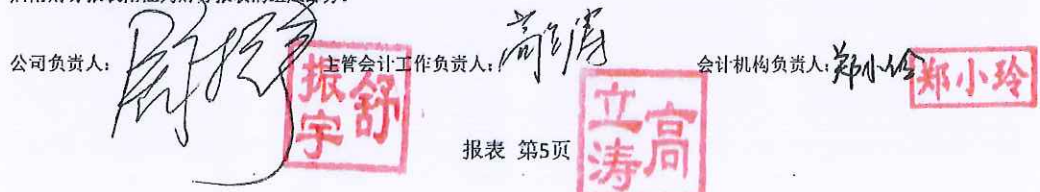 公司负责人: 舒振宇 主管会计工作负责人: 高立涛 会计机构负责人: 郑小玲
舒振宇
高立涛
郑小玲
报表 第5页